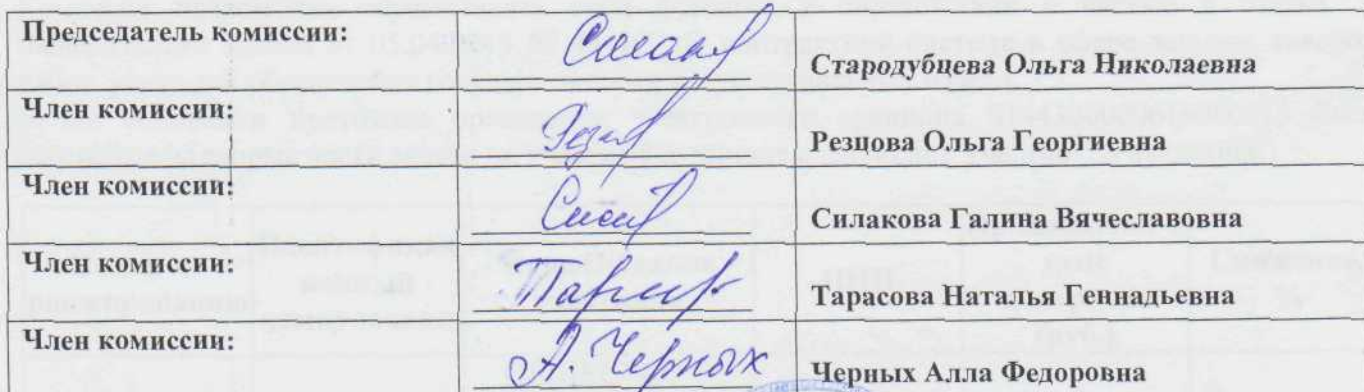 Председатель комиссии: Стародубцева Ольга Николаевна
Член комиссии: Резцова Ольга Георгиевна
Член комиссии: Силакова Галина Вячеславовна
Член комиссии: Тарасова Наталья Геннадьевна
Член комиссии: А. Черных Черных Алла Федоровна